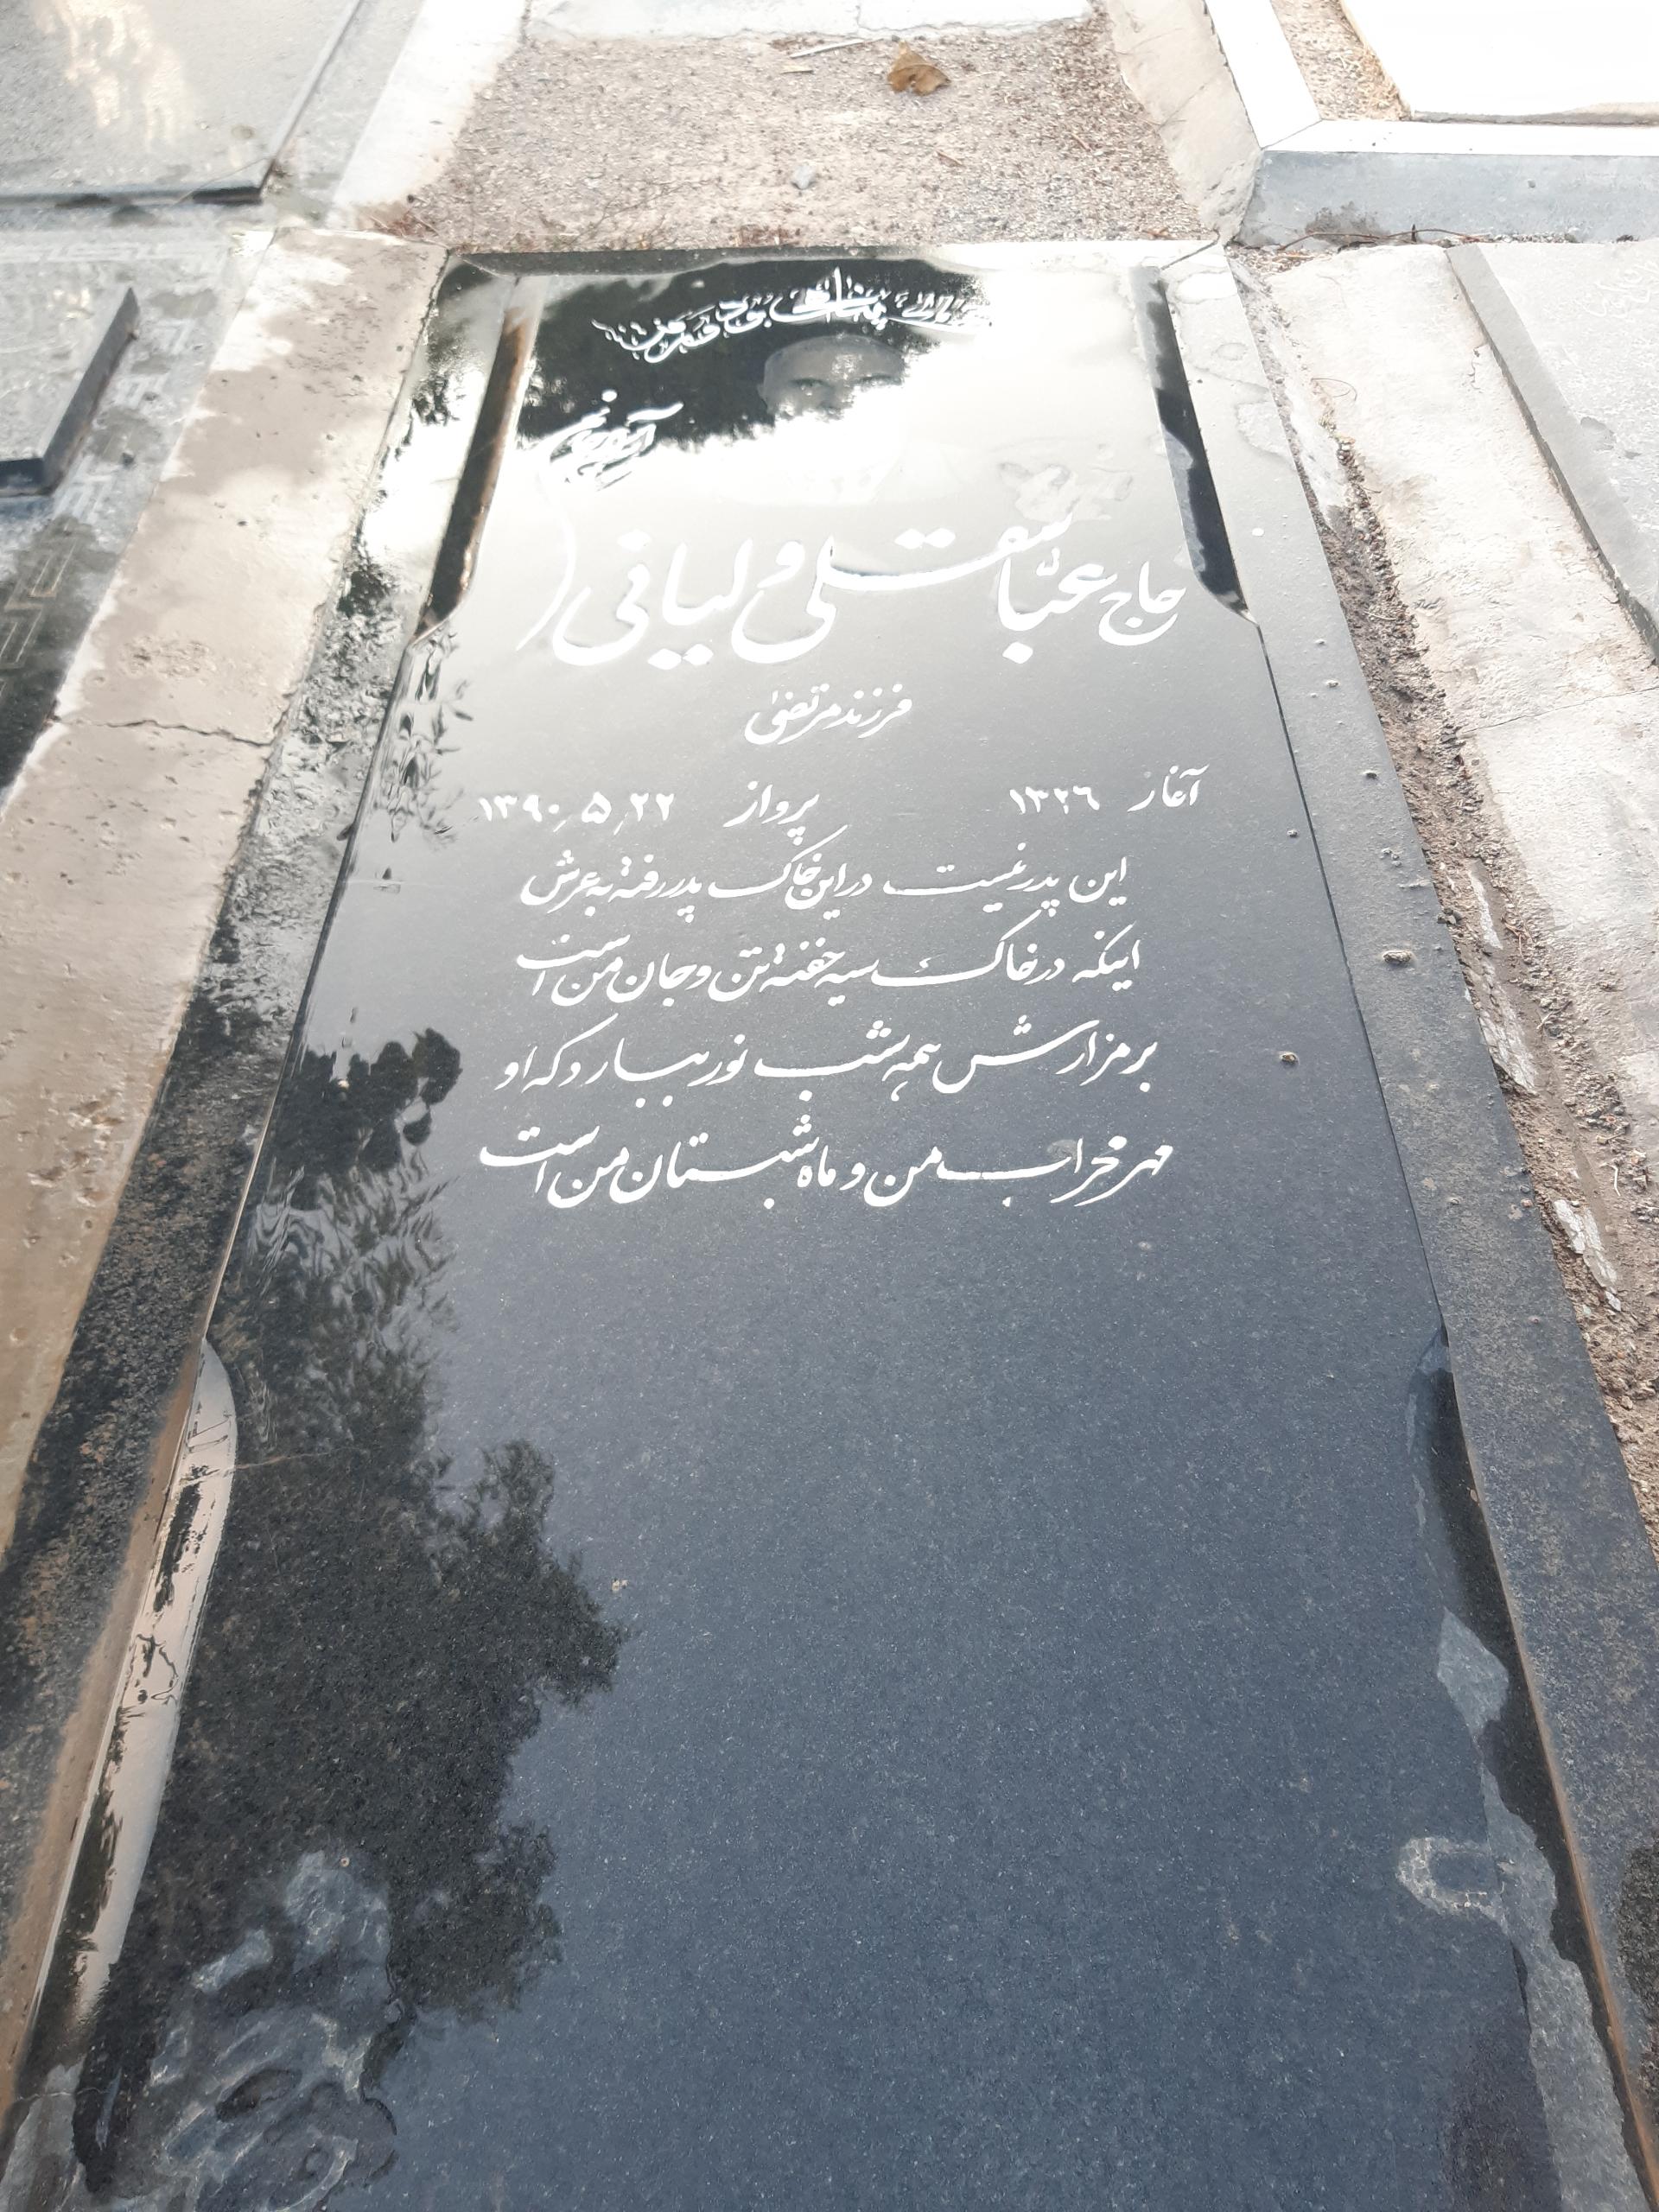 آرام جانم
حاج عباسقلی ولیانی
فرزند مرتضی
آغاز ۱۳۲۶ پرواز ۱۳۹۰٫۵٫۲۲
این پدر نیست در این خاک پدر رفته به عرش
اینکه در خاک سیه خفته تن و جان من است
بر مزارش همه شب نور ببارد که او
مهر محراب من و ماه شبستان من است